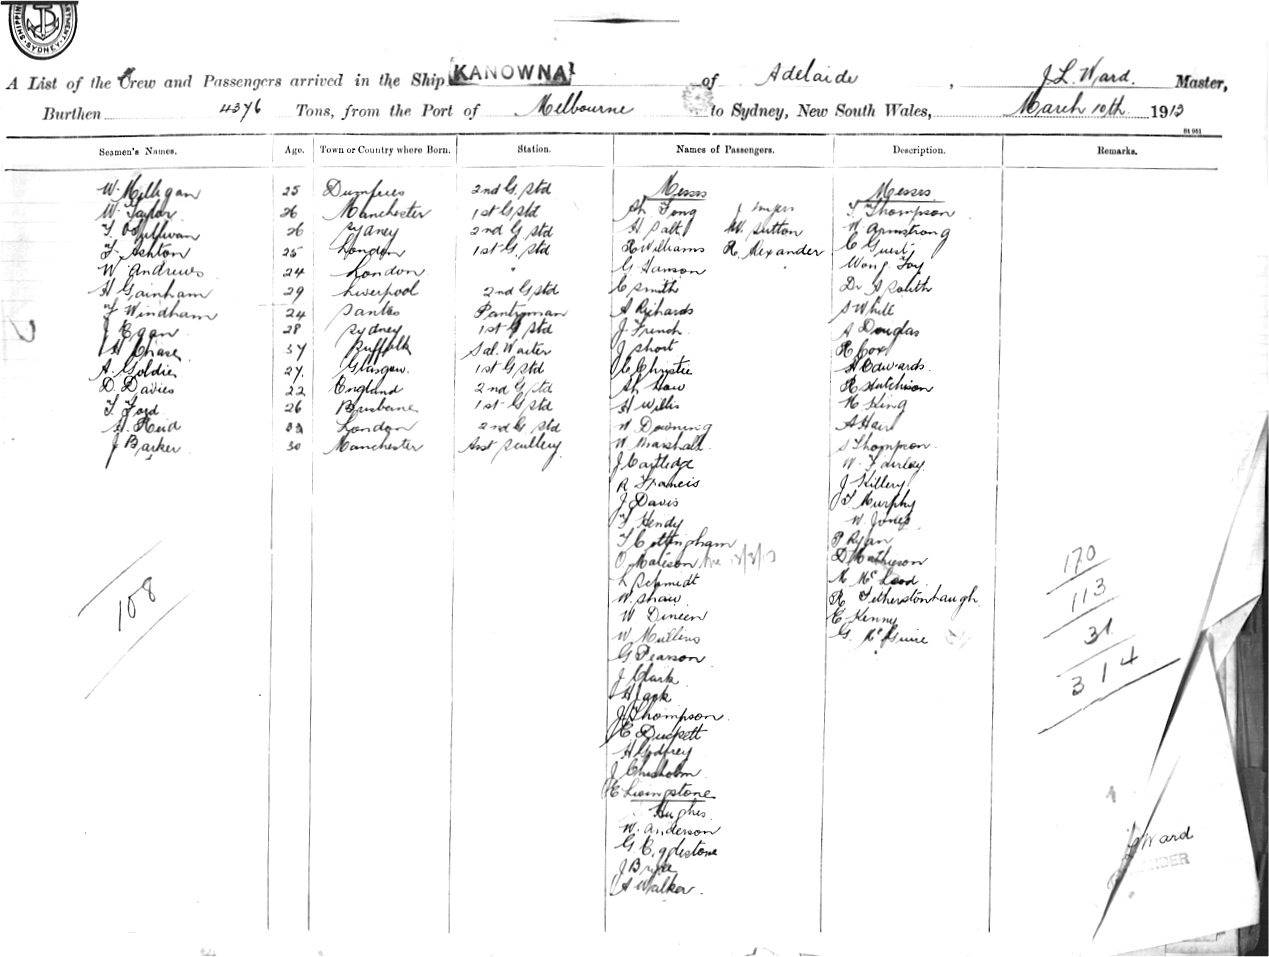 SHIPPING
SYDNEY
A List of the Crew and Passengers arrived in the Ship KANOWNA of Adelaide, J L. Ward. Master,
Burthen 4376 Tons, from the Port of Melbourne to Sydney, New South Wales, March 10th 1913
Seamen's Names. Age. Town or Country where Born. Station. Names of Passengers. Description. Remarks.
W. Milligan 25 Dumfries 2nd G. Std Messrs Messrs
W. Taylor 26 Manchester 1st G Std Ah Fong T. Thompson
26 Sydney 2nd G Std H Salt W Sutton W. Armstrong
T. Ashton 25 London 1st G. Std R Williams R. Alexander C Guest
W. Andrews 24 London " G Hanson Wong Foy
H Gainham 29 Liverpool 2nd G Std C Smith Dr
F Windham 24 Pantryman A Richards S White
J Egan 28 Sydney 1st G Std J French A Douglas
H Chase 37 Suffolk Sal. Waiter J Short R Cox
A. Goldie 27 Glasgow 1st G Std C Christie H Edwards
D. Davies 22 England 2nd G Std Ah How R Hutchison
T Ford 26 Brisbane 1st G Std H Willis H King
H. Reid London 2nd G Std W Downing A Hair
J Barker 30 Manchester Asst Scullery W Marshall S Thompson
J Cartledge W. Fairley
R Francis J Killery
J Davis T Murphy
F Hendy W. Jones
T Cottingham P Ryan
O Mateson D Mathieson
L Schmidt N McLeod
W. Shaw R Fetherstonhaugh
W Dineen E Kenny
W. Mullins G. McGuire
G Pearson
J Clark
H Jack
J Thompson
E Duckett
H Godfrey
J Chisholm
E Livingstone
Hughes
W. Anderson
G Egglestone
J Bryce
A Walker
108
170
113
31
314
J Ward